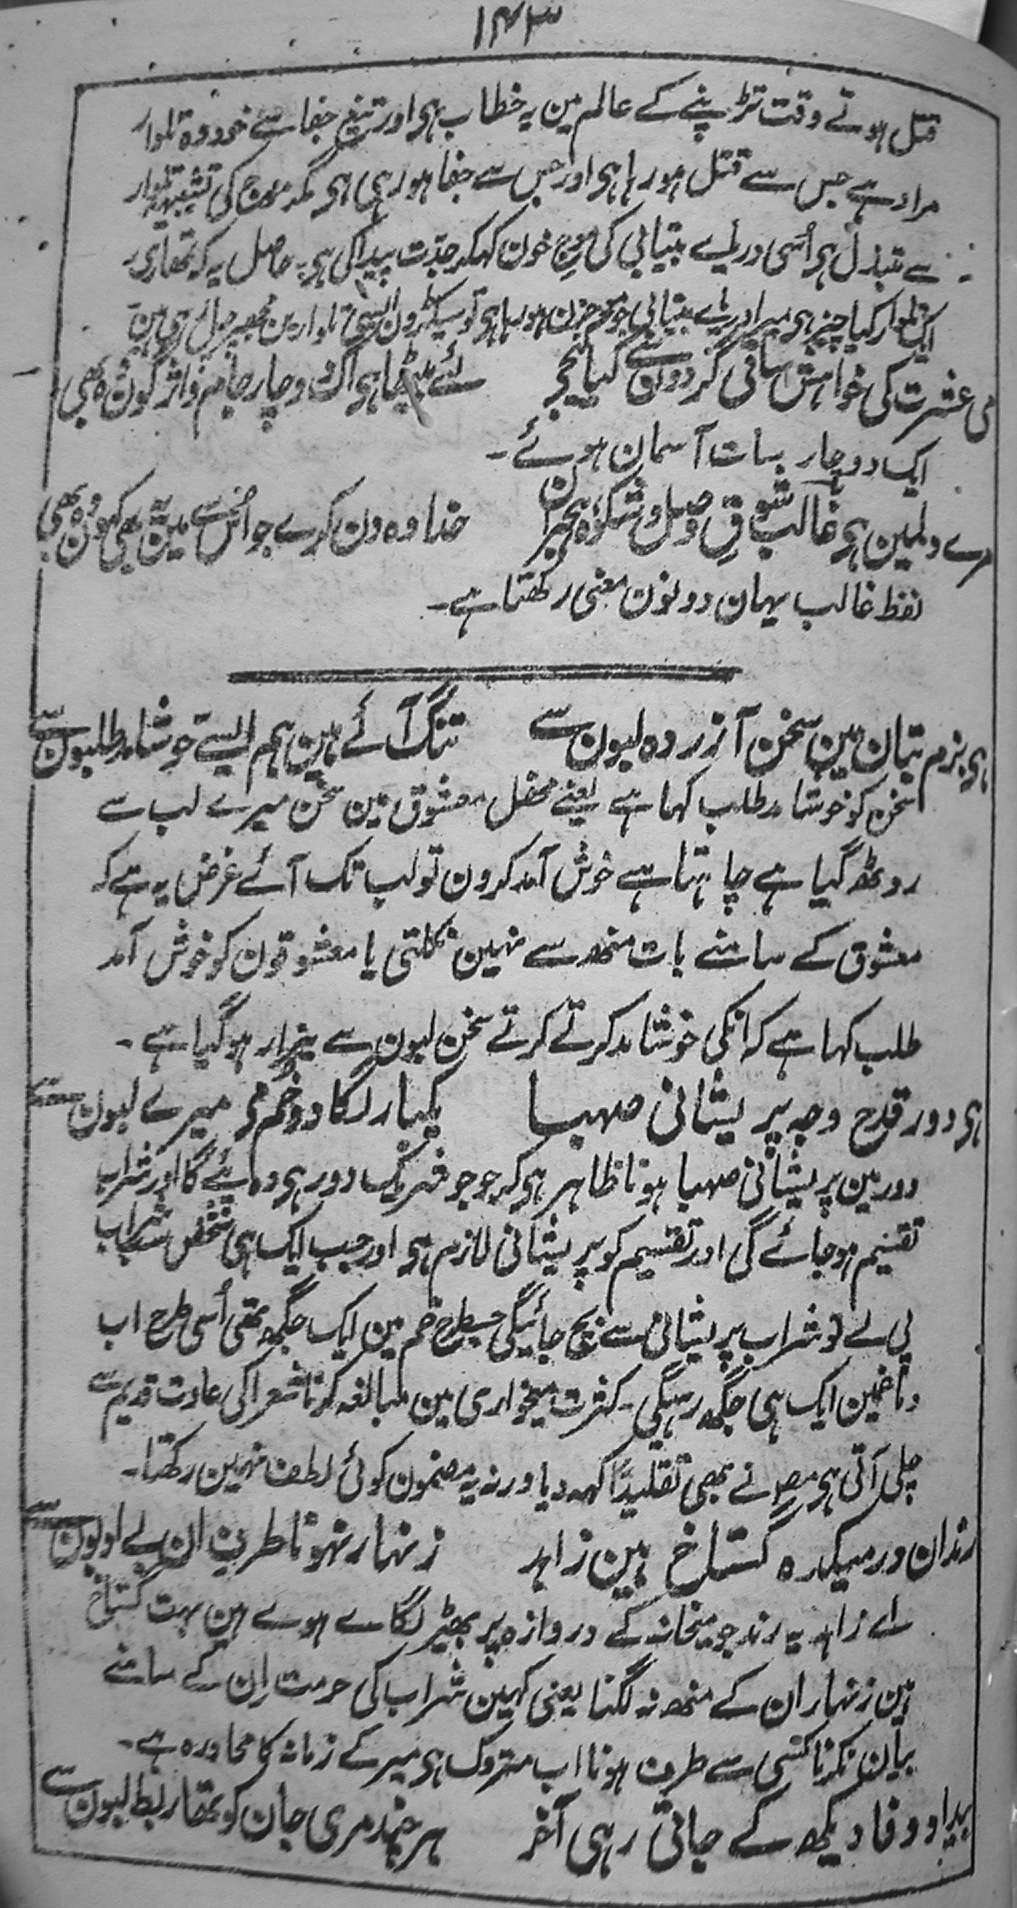 ۱۴۳
قتل ہوتے وقت تڑپنے کے عالم مین یہ خطاب ہی اور تیغ جفا سے خود وہ تلوار
مراد ہے جس سے قتل ہورہا ہی اور جس سے جفا ہورہی ہی مگر موج کی تشبیہ تلوار
سے مبتذل ہی اُسی دریاے بیتابی کی موج خون کہکر جدّت پیدا کی ہی۔ حاصل یہ کہ تمھاری
ایک تلوار کیا چیز ہی میرا دریاے بیتابی جو موجزن ہورہا ہی تو سیکڑون ایسی تلوارین مجھپر چل رہی ہین
می عشرت کی خواہش ساقی گردون سے کیا کیجے لئے بیٹھا ہی اک دو چار جام واژگون وہ بھی
ایک دو چار سات آسمان ہوئے۔
مرے دلمین ہی غالب شوقِ وصل و شکوۂ ہجران خدا وہ دن کرے جو اُس سے مین یہ بھی کہون وہ بھی
لفظ غالب یہان دونون معنی رکھتا ہے۔
ہی بزم بتان مین سخن آزردہ لبون سے تنگ آئے ہین ہم ایسے خوشامد طلبون سے
سخن کو خوشامد طلب کہا ہے یعنے محفل معشوق مین سخن میرے لب سے
روٹھ گیا ہے چاہتا ہے خوش آمد کرون تو لب تک آئے غرض یہ ہے کہ
معشوق کے سامنے بات منھ سے نہین نکلتی یا معشوقون کو خوش آمد
طلب کہا ہے کہ انکی خوشامد کرتے کرتے سخن لبون سے بیزار ہوگیا ہے۔
ہی دور قدح وجہ پریشانی صہبا یکبار لگا دو خم می میرے لبون سے
دور مین پریشانی صہبا ہونا ظاہر ہی کہ جو جو شریک دور ہی وہ پئے گا اور شراب
تقسیم ہوجائے گی اور تقسیم کو پریشانی لازم ہی اور جب ایک ہی شخص سب شراب
پی لے تو شراب پریشانی سے بچ جائیگی جسطرح خم مین ایک جگھ تھی اُسی طرح اب
دماغمین ایک ہی جگھ رہیگی۔ کثرت میخواری مین مبالغہ کرنا شعرا کی عادت قدیم سے
چلی آتی ہی مصنف نے بھی تقلیداً کہہ دیا ورنہ یہ مضمون کوئی لطف نہین رکھتا۔
رندان در میکدہ گستاخ ہین زاہد زنہار نہونا طرف ان بے ادبون سے
اے زاہد یہ رند جو میخانہ کے دروازہ پر بھیڑ لگاے ہوے ہین بہت گستاخ
ہین زنہار ان کے منھ نہ لگنا یعنی کہین شراب کی حرمت اِن کے سامنے
بیان نکرنا کسی سے طرف ہونا اب متروک ہی میر کے زمانہ کا محاورہ ہے۔
بیداد وفا دیکھ کے جاتی رہی آخر ہرچند مری جان کو تھا ربط لبون سے